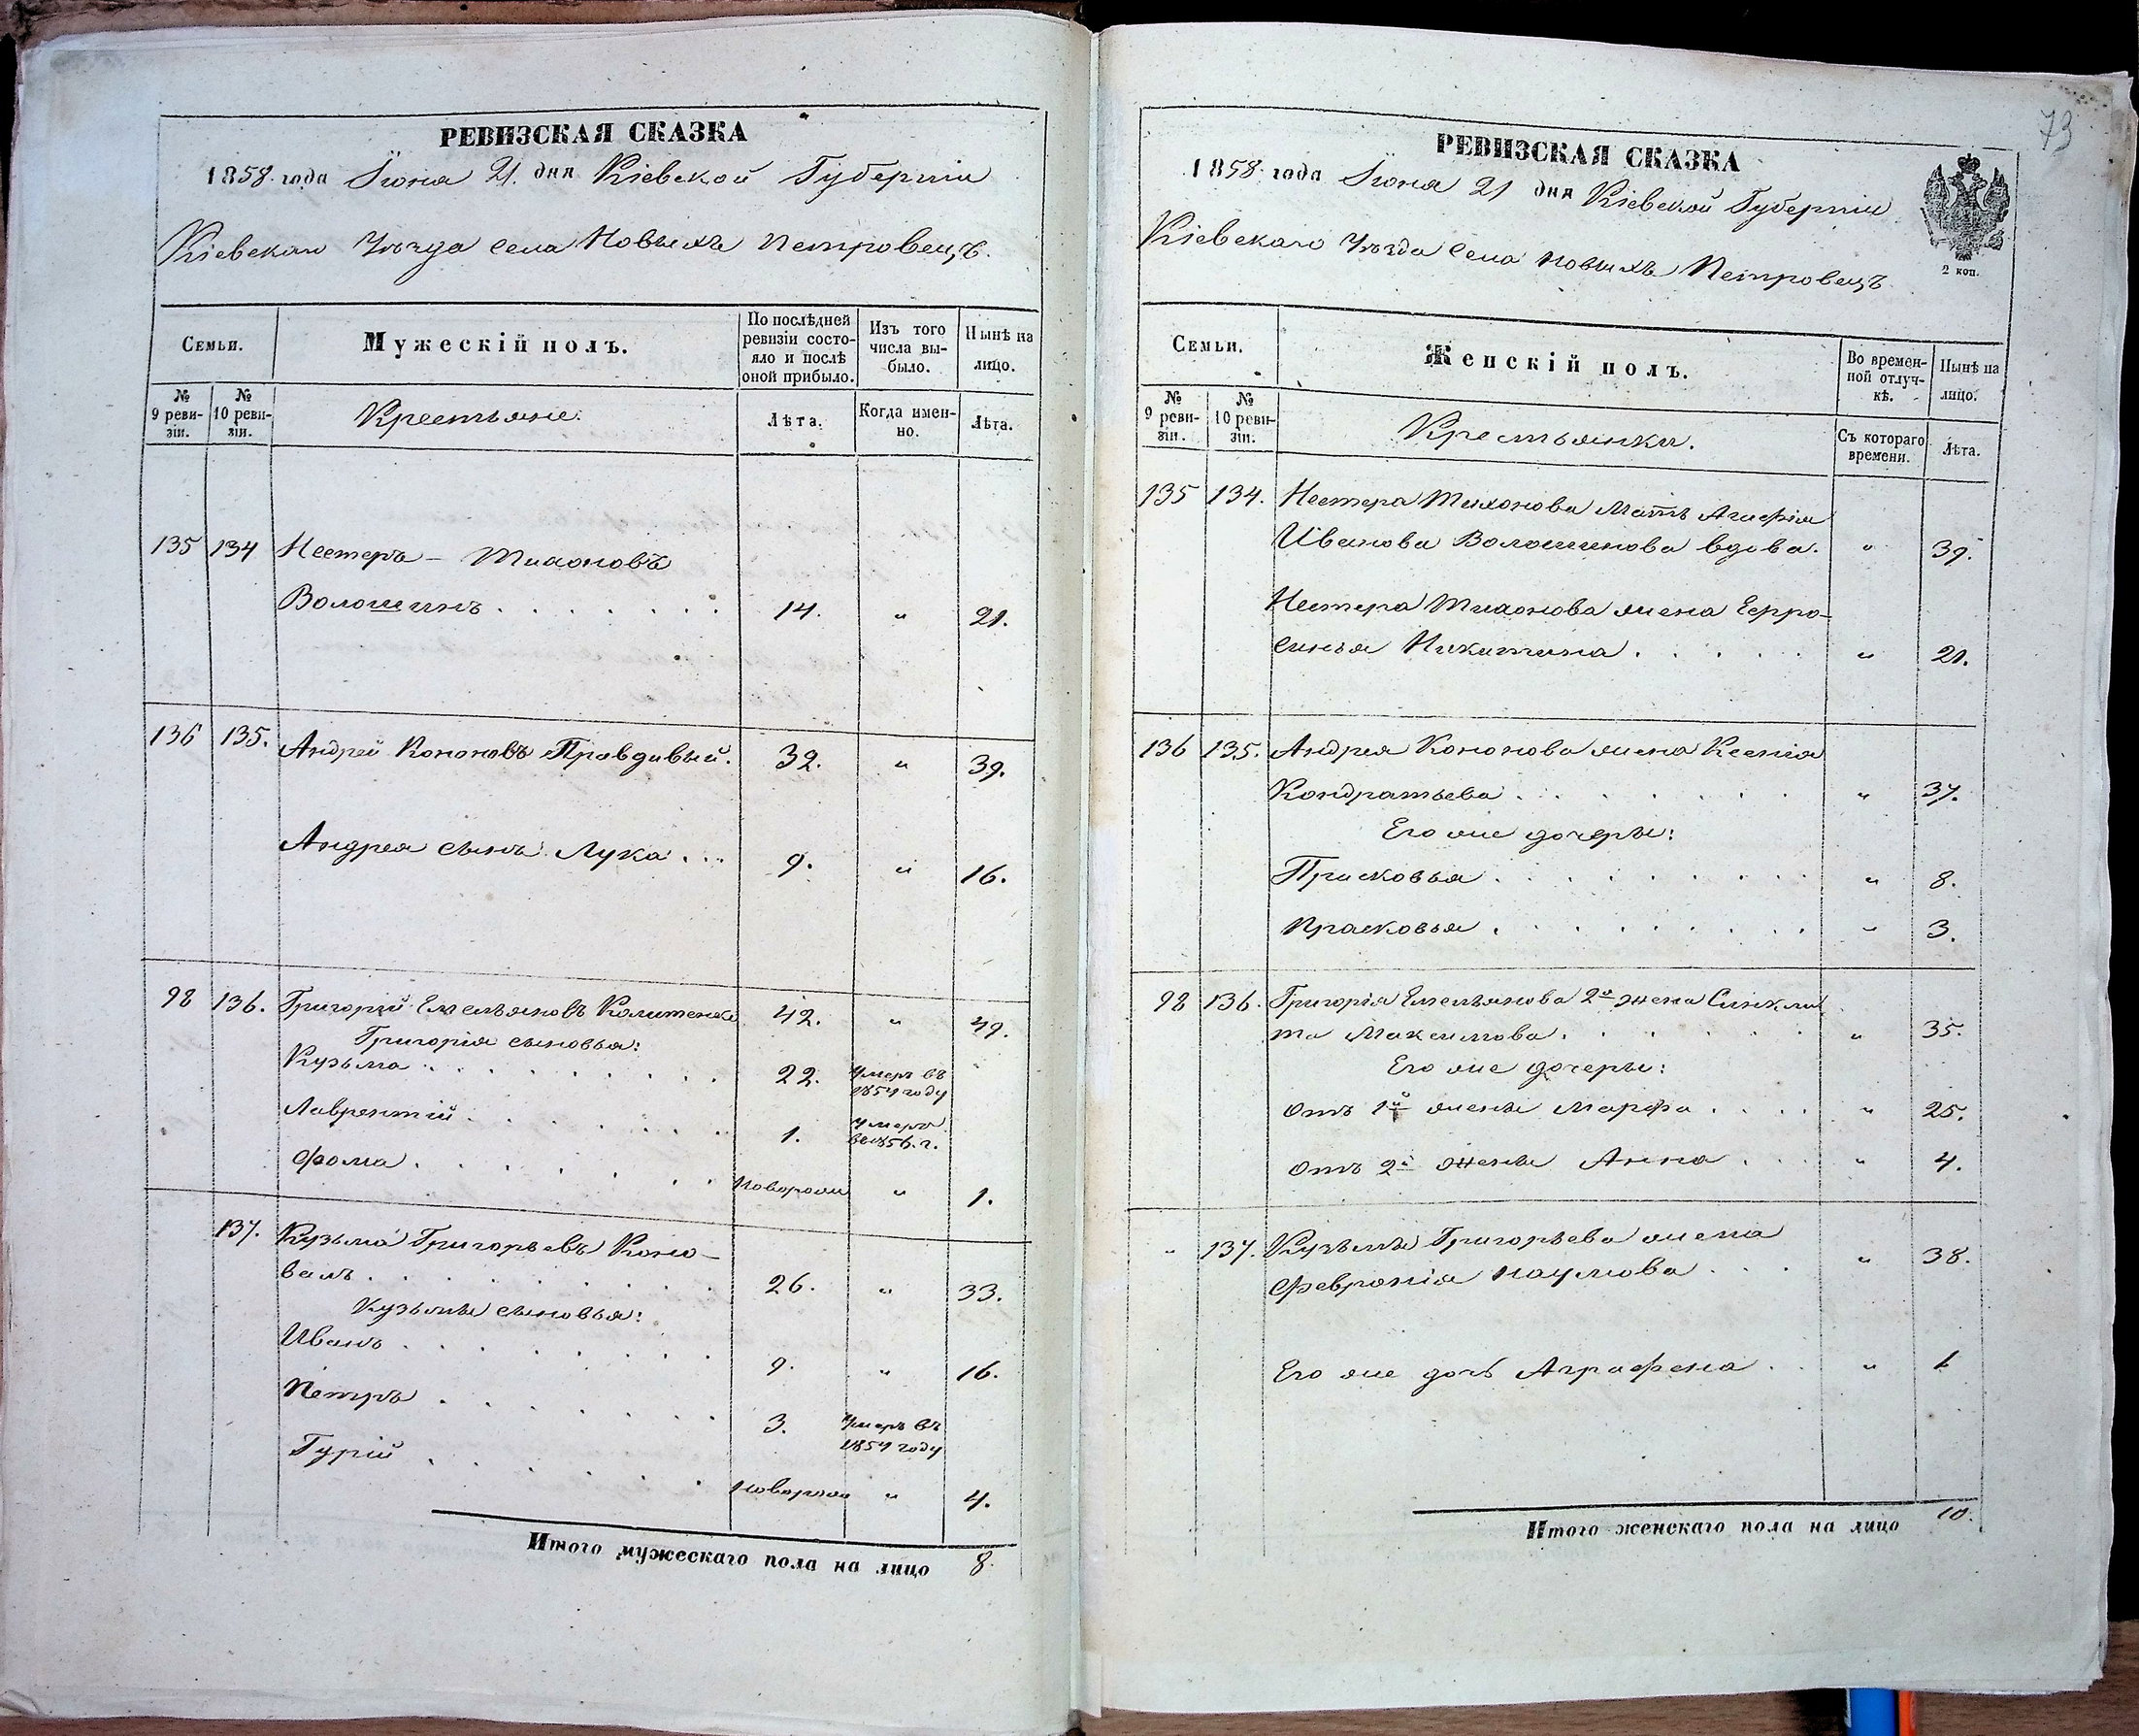 РЕВИЗСКАЯ СКАЗКА
1858 года Іюня 21. дня Кіевской Губерніи
Кіевскаго Уѣзда села Новыхъ Петровецъ.
Семьи.
Мужескій полъ.
По послѣдней ревизіи состояло и послѣ оной прибыло.
Изъ того числа выбыло.
Нынѣ на лицо.
№ 9 ревизіи.
№ 10 ревизіи.
Крестьяне.
Лѣта.
Когда именно.
Лѣта.
135 134 Нестеръ - Тихоновъ
Волошинъ . . . . . . . 14. " 21.
136 135. Андрей Кононовъ Правдивый. 32. " 39.
Андрея сынъ Лука . . . 9. " 16.
98 136. Григорій Емельяновъ 42. " 49.
Григорія сыновья:
Кузьма . . . . . . . . 22. Умеръ въ
1854 году
Лаврентій . . . . . . . 1. умеръ
въ 1856. г.
Фома . . . . . . Поворожд " 1.
137. Кузьма Григорьевъ Коно-
валъ . . . . . . . . 26. " 33.
Кузьмы сыновья:
Иванъ . . . . . . . 9. " 16.
Петръ . . . . . . . 3. Умеръ въ
1854 году
Гурій . . . . . . . новорож " 4.
Итого мужескаго пола на лицо 8.
73
РЕВИЗСКАЯ СКАЗКА
1858 года Іюня 21 дня Кіевской Губерніи
Кіевскаго Уѣзда Села Новыхъ Петровецъ
2 коп.
Семьи.
Женскій полъ.
Во временной отлучкѣ.
Нынѣ на лицо.
№ 9 ревизіи.
№ 10 ревизіи.
Крестьянки.
Съ котораго времени.
Лѣта.
135 134. Нестера Тихонова Мать Агафія
Иванова Волошинова вдова. " 39.
Нестера Тихонова жена Евфро-
синья Никитина . . . . . " 21.
136 135. Андрея Кононова жена Ксенія
Кондратьева . . . . . . . " 37.
Его же дочери:
Присковья . . . . . . . . " 8.
Прасковья . . . . . . . . " 3.
98 136. Григорія Емельянова 2я жена Синкли
та Максимова . . . . . . " 35.
Его же дочери:
Отъ 1й жены Марфа . . . . " 25.
Отъ 2й жены Анна . . . " 4.
" 137. Кузьмы Григорьева жена
Февронія Наумова . . . " 38.
Его же дочь Аграфена . . " 1
Итого женскаго пола на лицо 10.